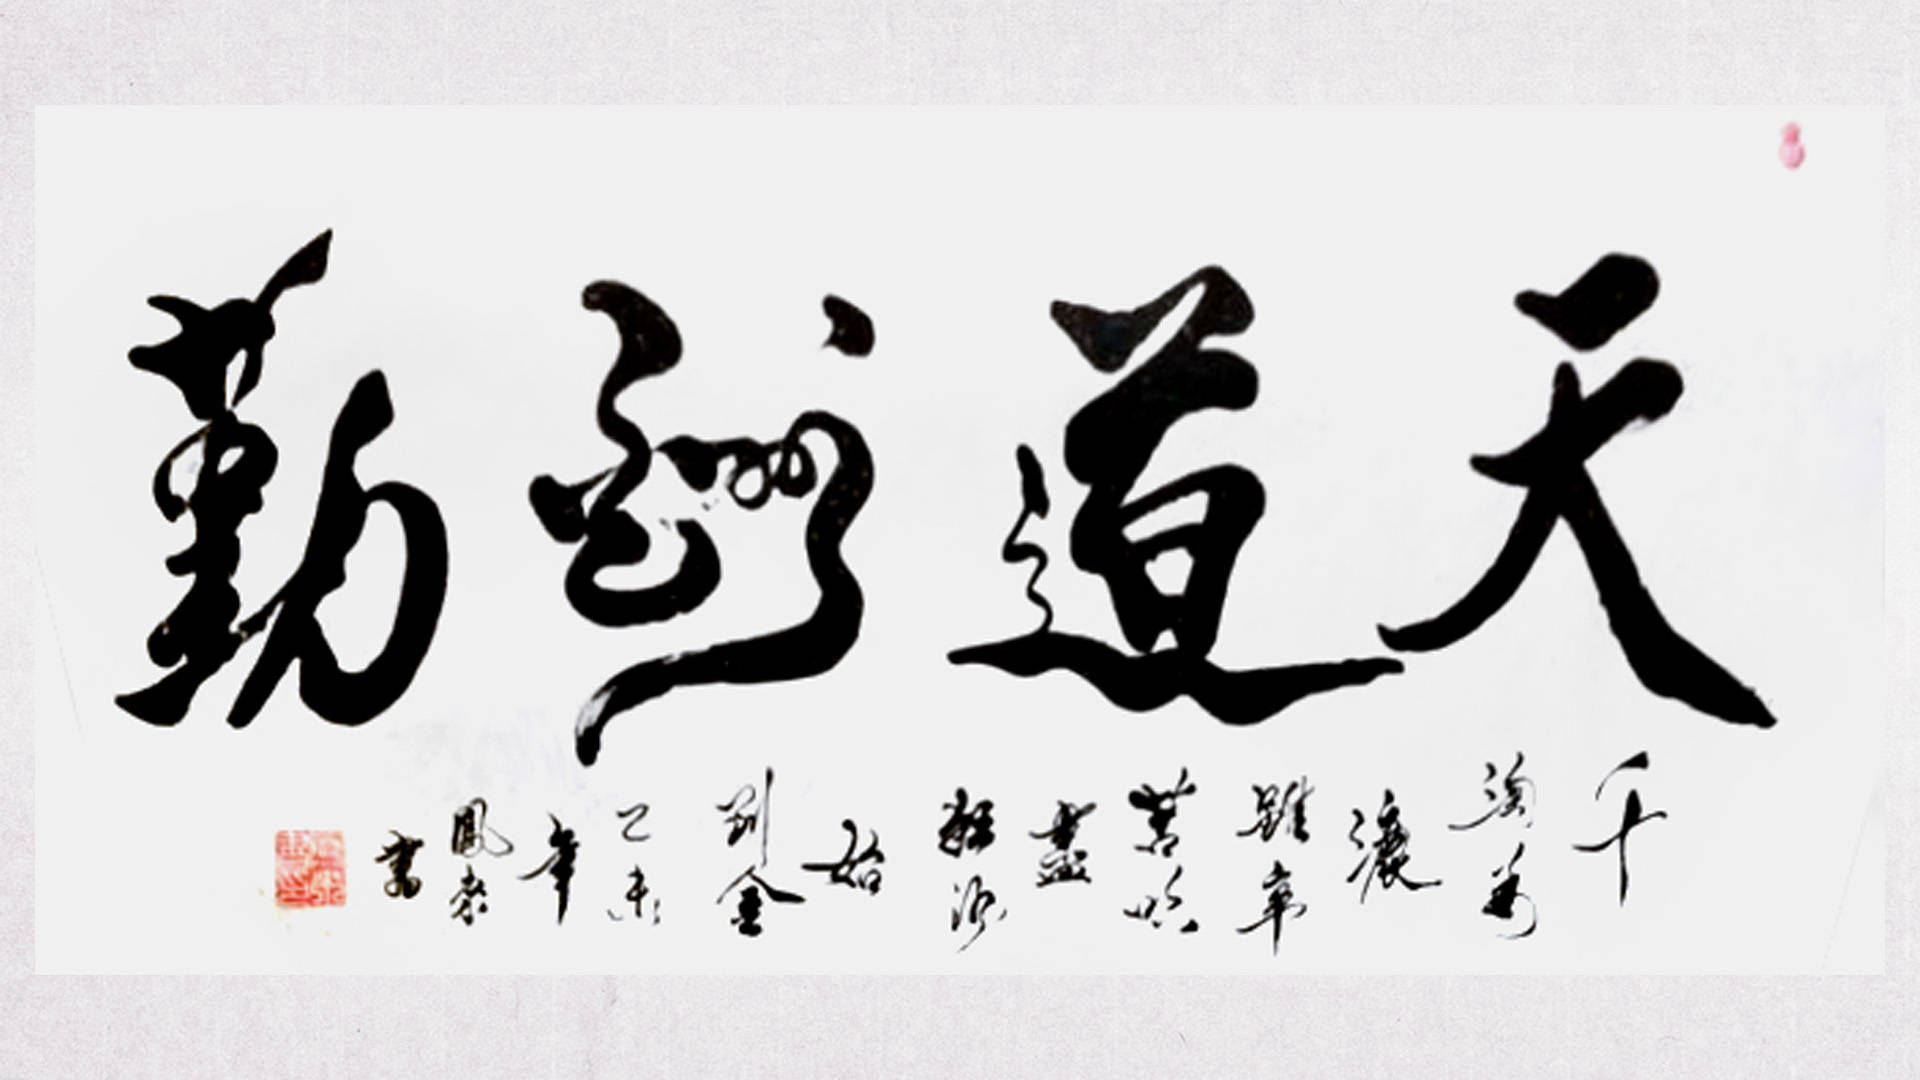 天道酬勤
千淘萬漉雖辛苦吹盡狂沙始到金乙未年鳳來書